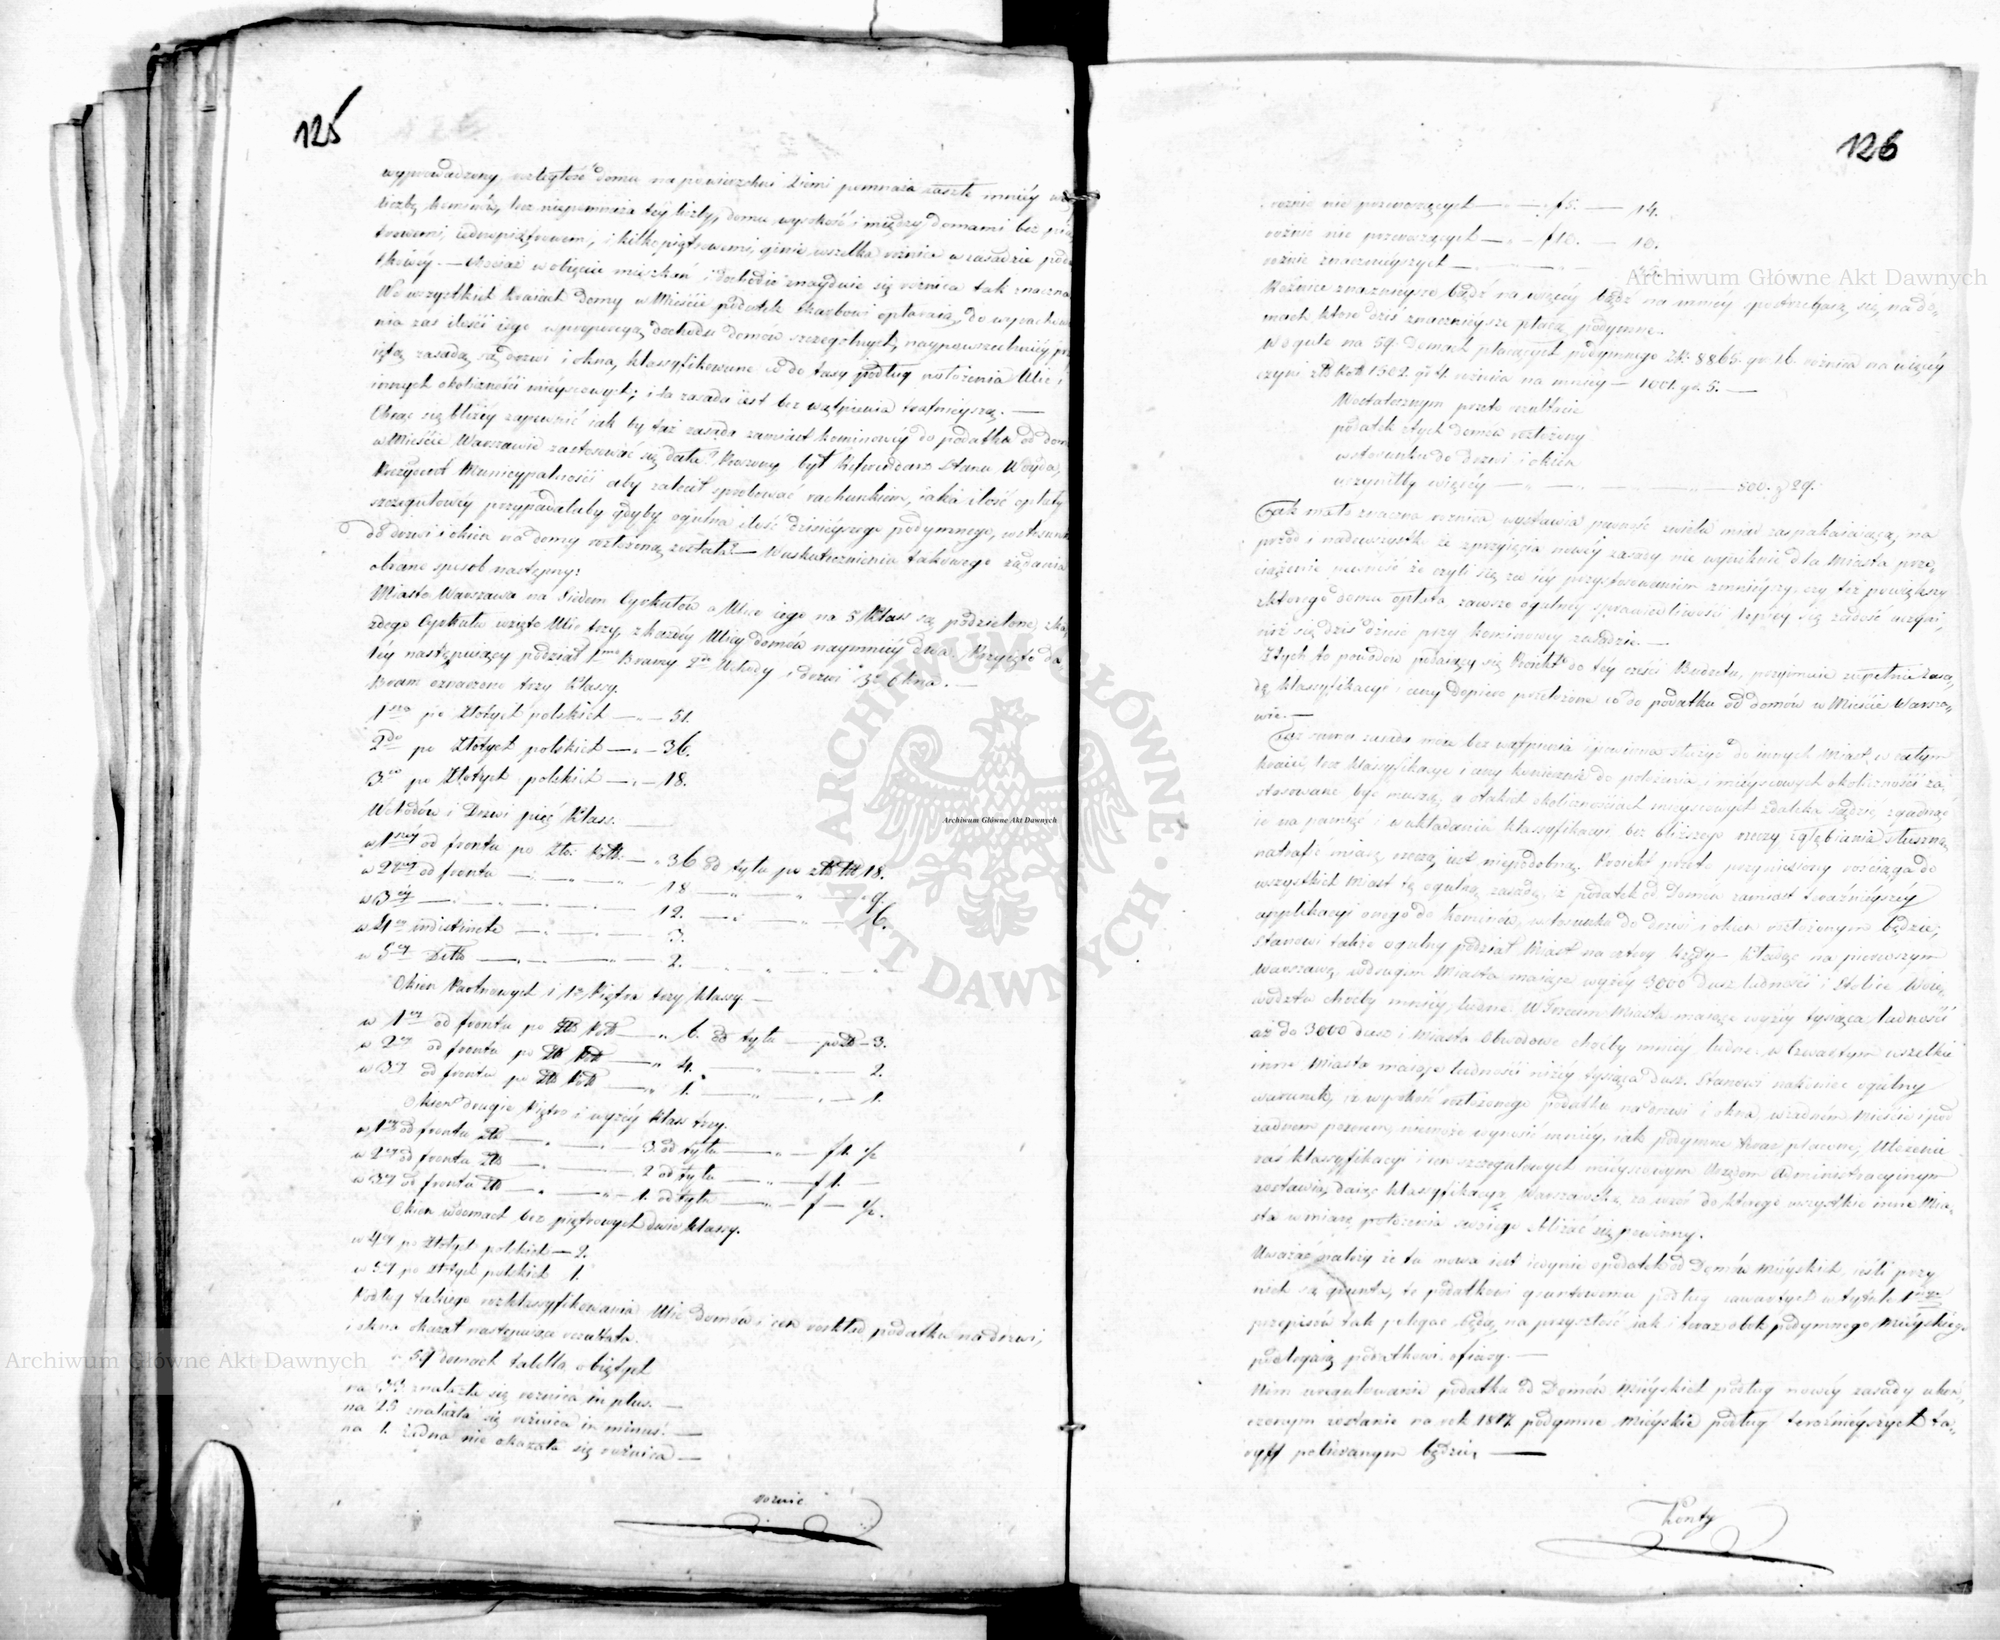 125
wyprowadzony, rozległość domu na powierzchni Ziemi pomnaża zaszłe mniéy
liczbę kominów, lecz niepomnaża téy liczby, domu wysokość i między domami bez
trowemi, jednopiętrowemi, i kilkopiętrowemi, ginie wszelka różnica w zasadzie
tkowéy. — Chociaż w obięciu mieszkań i dochodzie znayduie się różnica tak znaczna
We wszystkich Kraiach domy w Mieście podatek Skarbowi opłacaią, do wyrachowa
nia zaś ilości iego w proporcyą dochodu domów szczególnych, naypowszechniéy
iętą zasadą są drzwi i okna, klassyfikowane co do taxy podług położenia Ulic i
innych okoliczności mieyscowych; i ta zasada iest bez wątpienia trafnieyszą. —
Chcąc się bliżéy zapewnić jak by taż zasada zamiast kominowéy do podatku od
w Mieście Warszawie zastosować się dała? Proszony był Referendarz Stanu Woyda,
Prezydent Municypalności aby zalecił spróbować rachunkiem, jaka ilość opłaty
szczegułowéy przypadałaby gdyby ogólna ilość dzisieyszego podymnego, w stosunku
do drzwi i okien na domy rozłożoną została? — W uskutecznieniu takowego żądania
obrano sposób następny:
Miasto Warszawa na Siedem Cyrkułów a Ulice iego na 5 Klass są podzielone, z ka
żdego Cyrkułu wzięto Ulic trzy, z każdéy Ulicy domów naymniéy dwa. Przyięto da
léy następuiący podział 1mo Bramy 2do Wchody i drzwi 3o Okna. —
Bram oznaczono trzy Klassy.
1sza po Złotych polskich — „ — 51.
2da po Złotych polskich — „ — 36.
3cia po Złotych polskich — „ — 18.
Wchodów i Drzwi pięć Klass.
w 1széy od frontu po Złt. Pols. — „ 36 od tyłu po Złt Pol 18.
w 2giéy od frontu — „ — „ — 18 — „ — „ — 9.
w 3éy — „ — „ — 12. — „ — „ — 6.
w 4éy indistincte — „ — „ — 3.
w 5éy Detto — „ — „ — 2. — „ — „ —
Okien Parterowych i 1o Piętra trzy klassy. —
w 1éy od frontu po Złt Pol — „ 6. od tyłu — po Zł — 3.
w 2éy od frontu po Złt Pol — „ 4. — „ — 2.
w 3éy od frontu po Złt Pol — „ 1. — „ — 1.
Okien drugie Piętro i wyżéy Klass trzy.
w 1éy od frontu Złt — „ — „ — 3. od tyłu — „ — f 1. ½
w 2éy od frontu Złt — „ — „ — 2 od tyłu — „ — f 1. —
w 3éy od frontu Złt — „ — „ — 1. od tyłu — „ — f — ½.
Okien w domach bez piętrowych dwie klassy.
w 4éy po Złotych polskich — 2.
w 5éy po Złotych polskich 1.
Podług takiego rozklassyfikowania Ulic, domów i cen rozkład podatku na drzwi,
i okna okazał następuiące rezultata.
59 domach tabellą obiętych
na 33 znalazła się różnica in plus. —
na 25 znalazła się różnica in minus. —
na 1. żadna nie okazała się różnica —
różnic
126
różnic nie przenoszących — „ — f 5. — 14.
różnic nie przenoszących — „ — f 10. — 10.
różnic znacznieyszych — „ —
Różnice znacznieysze bądź na więcéy bądź na mniéy spostrzegaią się, na do-
mach które dziś znacznieysze płacą podymne.
W ogule na 59. Domach płacących podymnego Zł. 8865. gr. 16. różnica na więcéy
czyni Złt Pols 1502. gr 4. różnica na mniéy — 1001. gr. 5. —
W ostatecznym przeto rezultacie
podatek z tych domów rozłożony
w stosunku do drzwi i okien
uczyniłby więcéy — „ — 500. gr 29.
Tak mało znaczna różnica wystawia pewność z wielu miar zaspokaiaiącą, na
przód i nadewszystko że z przyięcia nowéy zasady nie wyniknie dla Miasta prze-
ciążenie, pewność że czyli się za iéy przystosowaniem zmnieyszy, czy też powiększy
z którego domu opłata zawsze ogulnéy sprawiedliwości lepiéy się zadość uczyni,
niż się dziś dzieie przy kominowéy zasadzie. —
Z tych to powodów podaiący się Proiekt do téy części Budżetu, przyimuie zupełnie zasa-
dę, klassyfikacye i ceny dopiero przełożone co do podatku od domów w Mieście Warsza-
wie. —
Taż sama zasada może bez wątpienia i powinna służyć do innych Miast, w całym
kraiu, lecz klassyfikacye i ceny koniecznie do położenia, i mieyscowych okoliczności za-
stosowane być muszą, a o takich okolicznościach mieyscowych zdaleka sądzić, zgadnąć
ie na pamięć i w układaniu klassyfikacyi bez bliższego rzeczy zgłębiania słuszną
natrafić miarę rzeczą iest niepodobną. Proiekt przeto przyniesiony rościąga do
wszystkich Miast tę ogulną zasadę, iż podatek od Domów zamiast teraźnieyszéy
applikacyi onego do kominów, w stosunku do drzwi i okien rozłożonym będzie;
stanowi także ogulny podział Miast na cztery Rzędy — kładąc na pierwszym
Warszawę, w drugim Miasta maiące wyżéy 3000 dusz ludności i Stolice Woie-
wództw choćby mniéy ludne. W Trzecim Miasta maiące wyżéy tysiąca ludności
aż do 3000 dusz i Miasta Obwodowe choćby mniéy ludne, w Czwartym wszelkie
inne Miasta maiące ludności niżéy tysiąca dusz. Stanowi nakoniec ogulny
warunek, iż wysokość rozłożonego podatku na drzwi i okna, w żadném mieście i pod
żadnem pozorem, niemoże wynosić mniéy, iak podymne teraz płacone; Ułożenie
zaś klassyfikacyi i cen szczegułowych mieyscowym Urzędom Administracyinym
zostawia, daiąc klassyfikacyą Warszawską za wzór do którego wszystkie inne Mia-
sta w miarę położenia swoiego zbliżać się powinny.
Uważać należy że tu mowa iest iedynie o podatek od Domów Mieyskich, ieśli przy
nich są grunta, te podatkowi gruntowemu podług zawartych w tytule 1szym
przepisów tak polegać będą, na przyszłość, iak i teraz obok podymnego Mieyskiego
podlegaią podatkowi ofiary. —
Nim uregulowanie podatku od Domów Mieyskich podług nowéy zasady ukoń-
czonym zostanie na rok 1817 podymne Mieyskie podług teraźnieyszych ta-
ryff pobieranym będzie. —
Konty
Archiwum Główne Akt Dawnych
Archiwum Główne Akt Dawnych
Archiwum Główne Akt Dawnych
ARCHIWUM GŁÓWNE AKT DAWNYCH